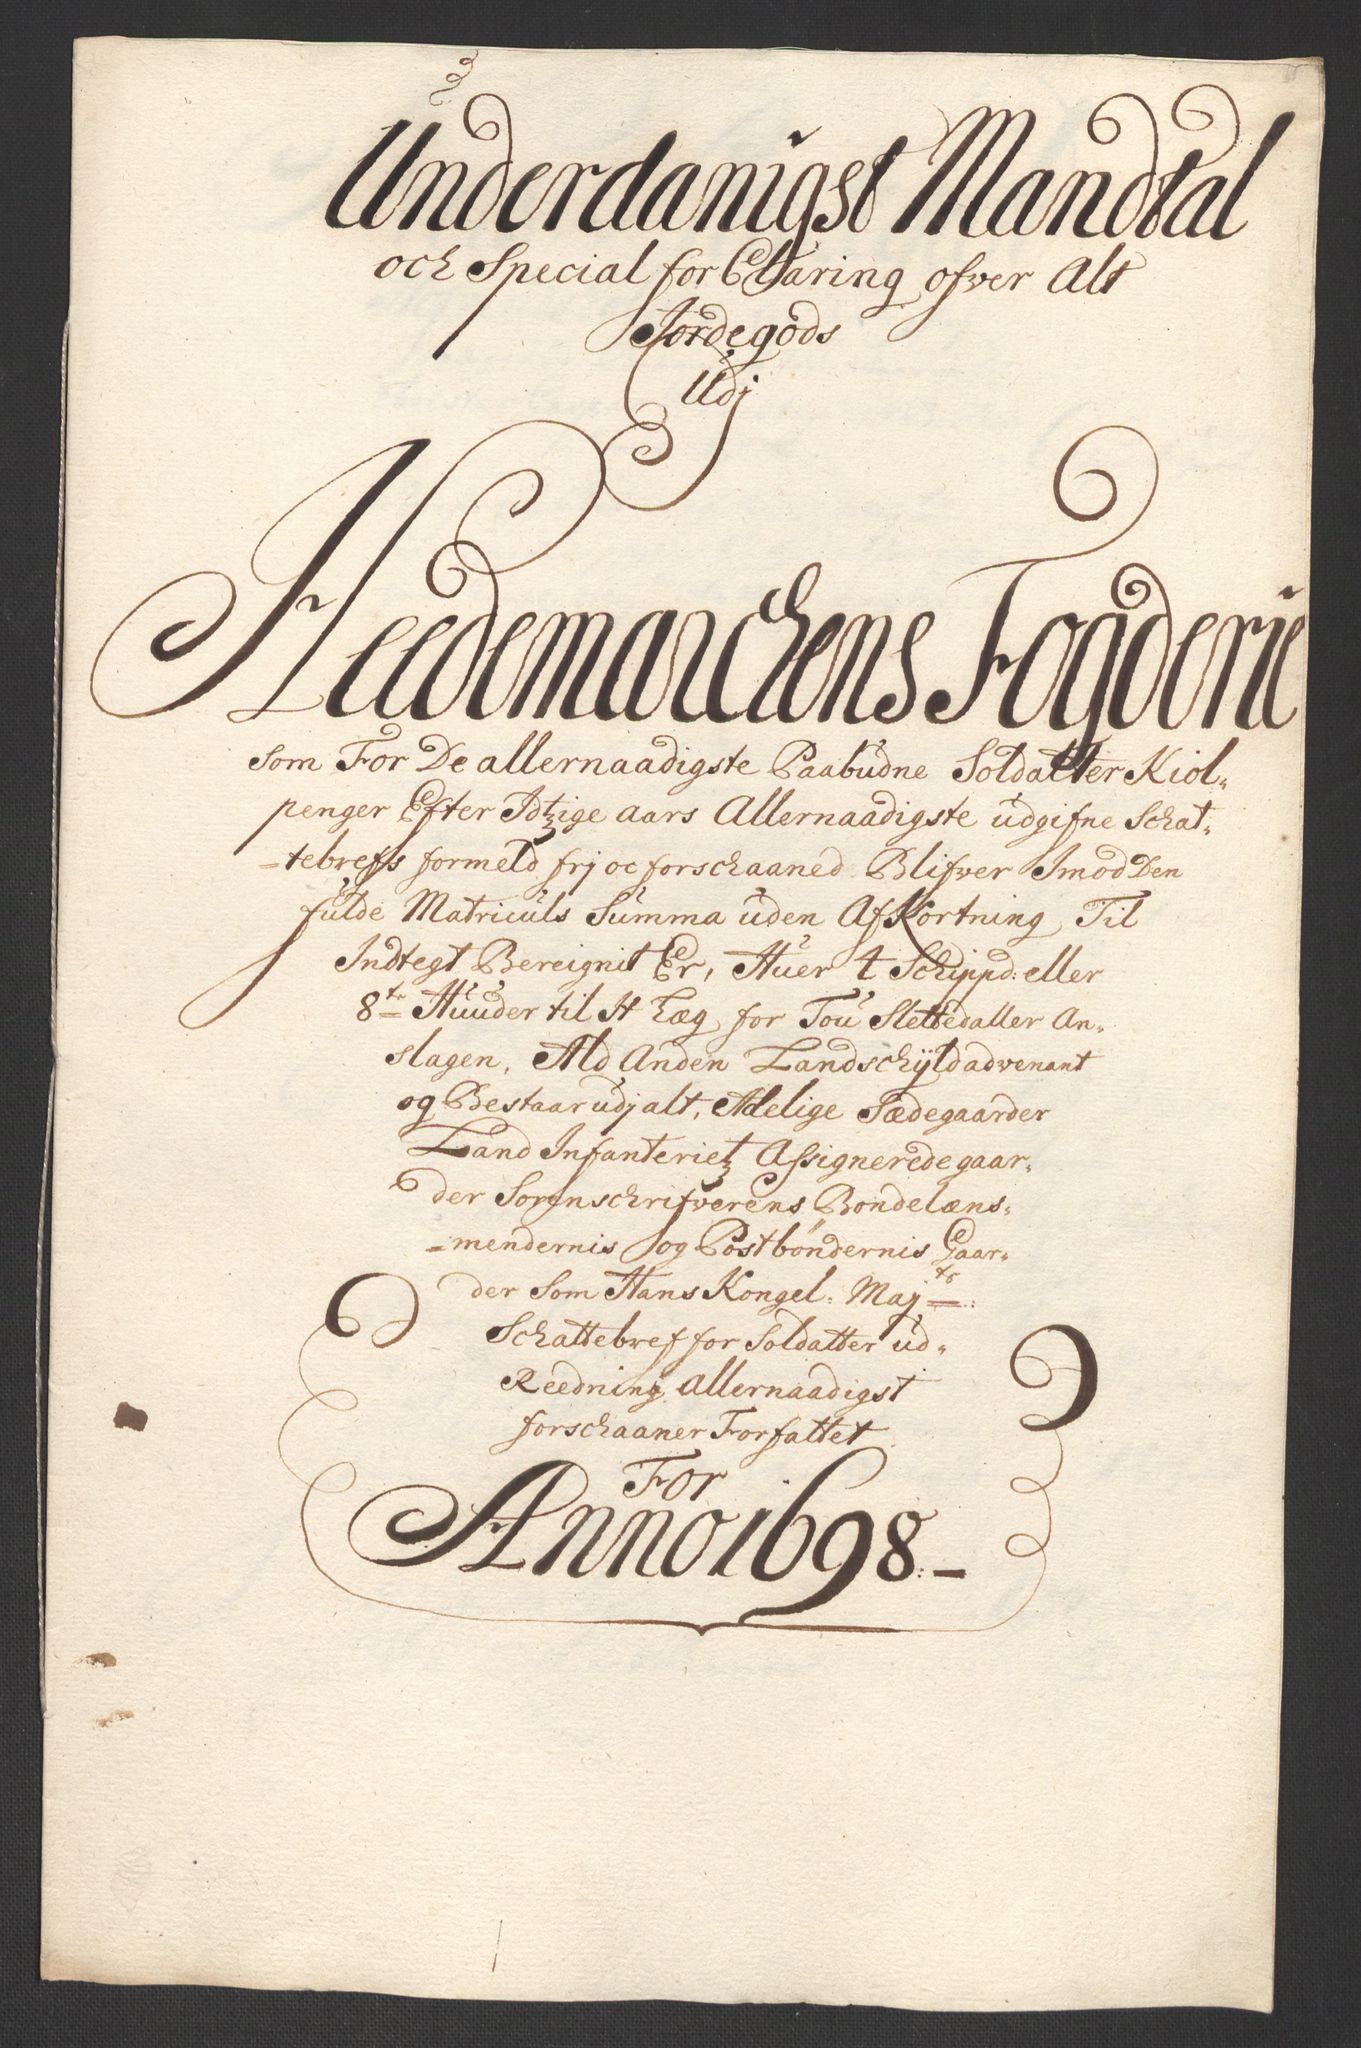 Underdanigst Mandtal
och Special forClaring ofver Alt
Jordegods
Udj
Heedemarchens Fogderie
som For De allernaadigste Paabudne Soldatter Kiol,,
penger Efter Idtzige aars Allernaadigste udgifne Schat,,
,,tebrefs formeld frj oc forschaaned Blifver Imod Den
fulde Matriculs Summa uden AfKortning Til
Indtegt Bereignit Er, Huer 4 Schippd: eller
8te Huuder til It Læg for Tou Slettedaller An,,
slagen, Ald Anden Landschyld advenant
og Bestaar udj alt, Adelige Sædegaarder
Land Infanterietz Assigneredegaar,,
der Sorenschrifverens Bondelæns,,
,,mendernis og Postbøndernis Gaar,,
der Som Hans Kongel: Majts:
Schattebref for Soldatter ud,,
Reedning allernaadigst
forschaaner Forfattet
For
Anno 1698:-